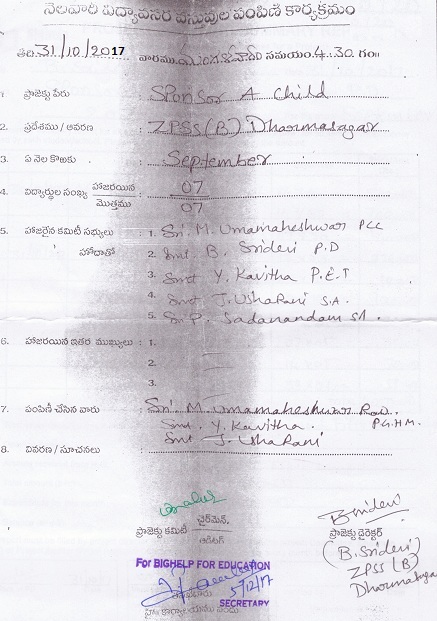 నెలవారీ విద్యావసర వస్తువుల పంపిణీ కార్యక్రమం
తేది 31/10/2017 వారము మంగళవారం సమయం 4.30 గం॥
1. ప్రాజెక్టు పేరు Sponsor A Child
2. ప్రదేశము / ఆవరణ ZPSS(B) Dharmasagar
3. ఏ నెల కొఱకు September
4. విద్యార్థుల సంఖ్య హాజరయిన 07
మొత్తము 07
5. హాజరైన కమిటీ సభ్యులు : 1. Sri. M. Umamaheshwar
హోదాతో 2. Smt B. Sridevi P.D
3. Smt Y. Kavitha P.E.T
4. Smt J. UshaRani S.A.
5. Sri P. Sadanandam SA.
6. హాజరయిన ఇతర ముఖ్యులు : 1.
2.
3.
7. పంపిణీ చేసిన వారు : Sri. M. Umamaheshwar Rao.
Smt. Y. Kavitha. P.G.H.M.
Smt J. UshaRani
8. వివరణ / సూచనలు :
ప్రాజెక్టు కమిటీ ఛైర్మెన్,
ఆడిటర్
ప్రాజెక్టు డైరెక్టర్
(B. Sridevi)
ZPSS (B)
Dharmasagar
For BIGHELP FOR EDUCATION
5/12/17
SECRETARY